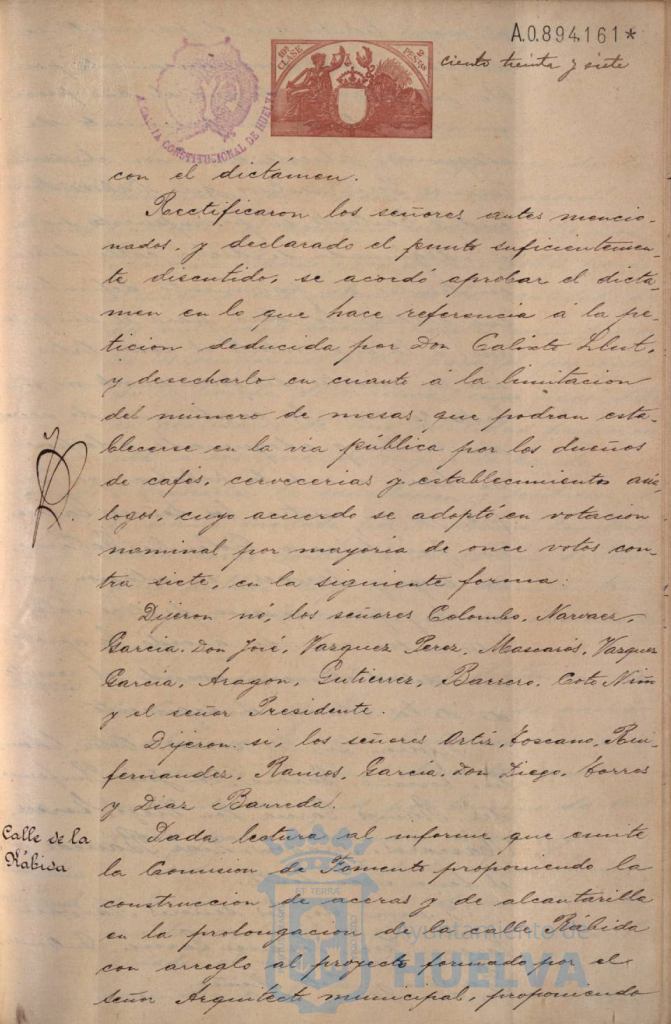 A.0.894.161*
10ª CLASE
2 PESETAS
ciento treinta y siete
ALCALDIA CONSTITUCIONAL DE HUELVA
con el dictámen.
Rectificaron los señores antes mencio-
nados, y declarado el punto suficientemen-
te discutido, se acordó aprobar el dicta-
men en lo que hace referencia á la pe-
ticion deducida por Don Calixto
y desecharlo en cuanto á la limitacion
del número de mesas que podran esta-
blecerse en la via pública por los dueños
de cafés, cervecerias y establecimientos aná-
logos, cuyo acuerdo se adoptó en votacion
nominal por mayoria de once votos con-
tra siete, en la siguiente forma:
Dijeron nó, los señores Colombo, Narvaez,
Garcia, Don José, Vazquez Perez, Mascarós, Vazquez
Garcia, Aragon, Gutierrez, Barrero, Coto, Niño
y el señor Presidente.
Dijeron si, los señores Ortiz, Toscano, Rui-
fernandez, Ramos, Garcia, Don Diego, Torres
y Diaz Barreda.
Calle de la
Rábida
Dada lectura al informe que emite
la Comision de Fomento proponiendo la
construccion de aceras y de alcantarilla
en la prolongacion de la calle Rábida
con arreglo al proyecto formado por el
señor Arquitecto municipal, proponiendo
Ayuntamiento de
HUELVA